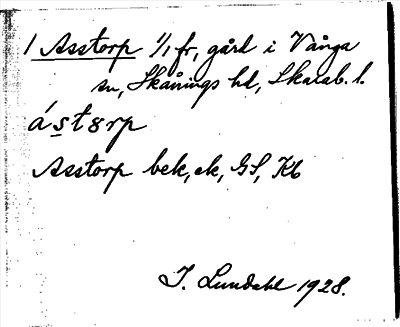 1 Asstorp 1/1 fr, gård i Vånga
sn, Skånings hd, Skarab. l.
ástørp
Asstorp bek, ek, GS, Kb
I. Lundahl 1928.